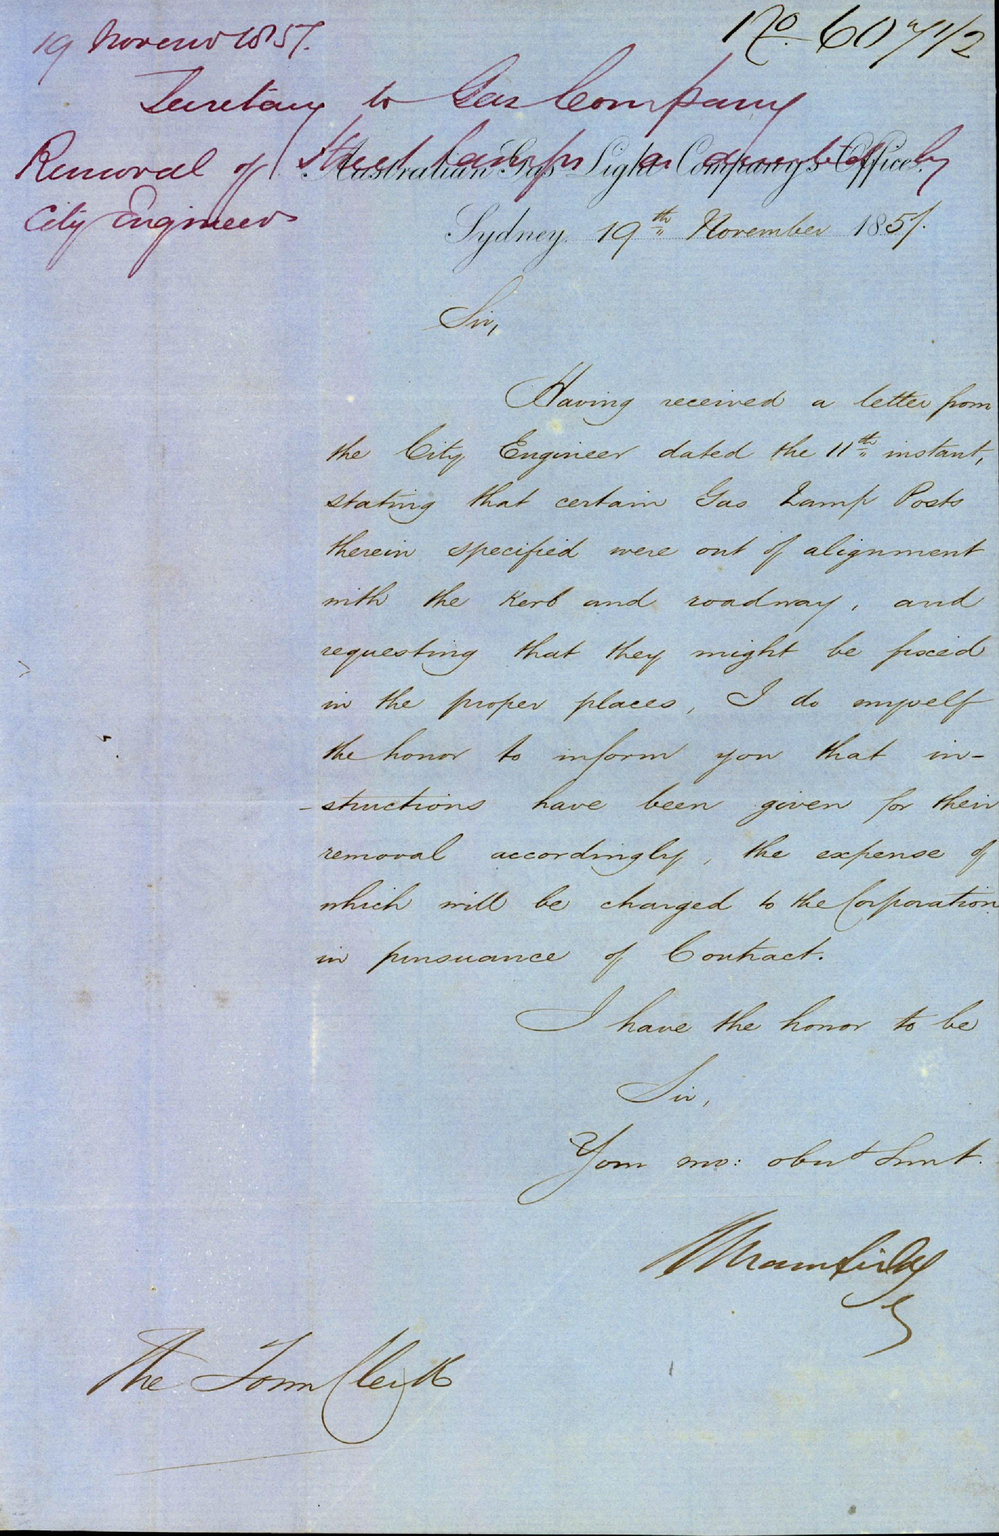 19 November 1857.
No. 607 1/2
Secretary to Gas Company
Removal of Street Lamps as directed by
City Engineer
Australian Gas Light Company's Office.
Sydney 19th November 1857.
Sir,
Having received a letter from
the City Engineer dated the 11th instant,
stating that certain Gas Lamp Posts
therein specified were out of alignment
with the Kerb and roadway, and
requesting that they might be fixed
in the proper places, I do myself
the honor to inform you that in-
-structions have been given for their
removal accordingly, the expense of
which will be charged to the Corporation
in pursuance of Contract.
I have the honor to be
Sir,
Your mo: obnt Servt.
Mansfield
The Town Clerk